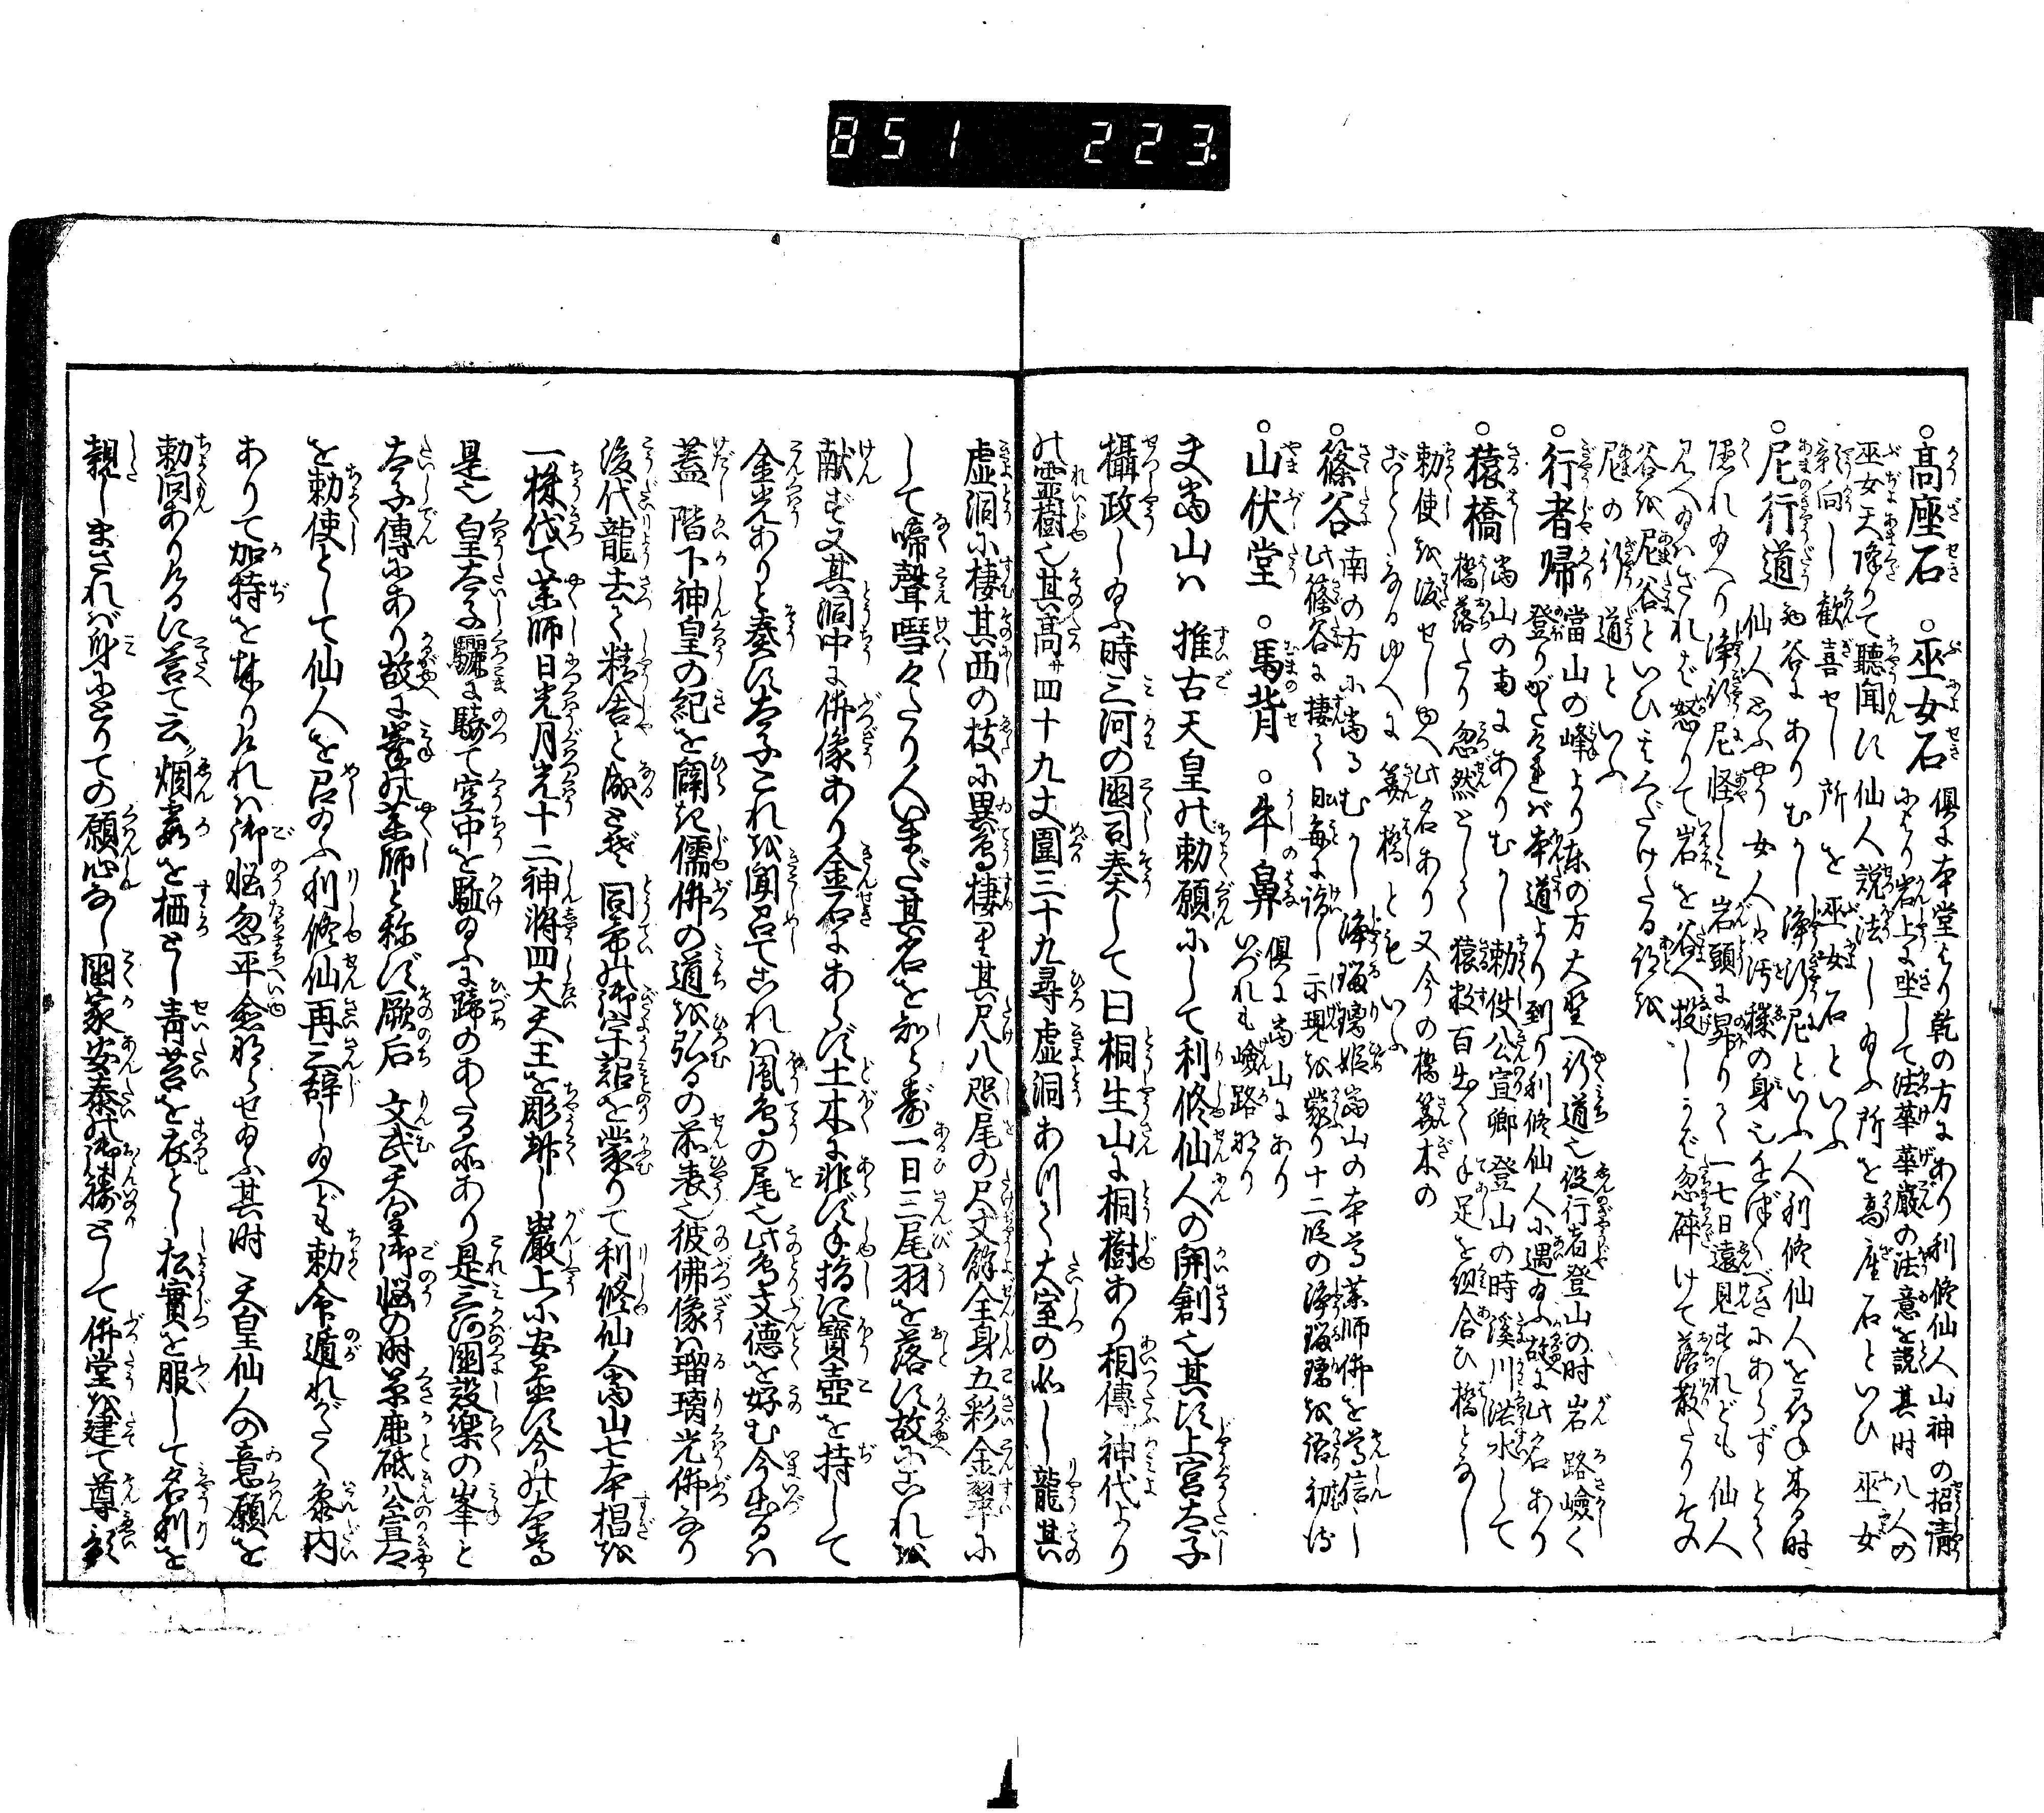 851 223.
○高座石 ○巫女石 倶に本堂より乾の方にあり利修仙人山神の招請
により岩上に坐して法華華厳の法意を説其时八人の
巫女天降りて聽聞す仙人説法し給ふ所を高座石といひ 巫女
影向し歓喜せし所を巫女石といふ
○尼行道 谷にありむかし浄行尼といふ人利修仙人を尋ね来る时
仙人思ふやう女人は汚穢の身也近づくべきにあらずとて
隠れ給へり浄行尼怪しみ岩頭に昇りて一七日遠見すれども仙人
見へ給はざれば怒りて岩を谷へ投しかば忽碎けて落散たり其
谷を尼谷といひ
尼の行道といふ
○行者帰 當山の峰より東の方大野へ行道也役行者登山の时岩路嶮く
登りがたければ本道より到り利修仙人に遇給ふ故に此名あり
○猿橋 當山の南にありむかし勅使公宣卿登山の時溪川洪水して
橋落たり忽然として猿数百出て手足を組合ひ橋となし
勅使を渡せしゆへ此名あり又今の橋算木の
ごとくなるゆへに算橋ともいふ
○篠谷 南の方に當るむかし浄瑠璃姫當山の本尊薬師佛を尊信し
此篠谷に棲て日毎に詣し示現を蒙り十二段の浄瑠璃を語初む
○山伏堂 ○馬背 ○牛鼻 倶に當山にあり
いづれも嶮路なり
夫當山は 推古天皇の勅願にして利修仙人の開創也其頃上宮太子
攝政し給ふ時三河の國司奏して曰桐生山に桐樹あり相傳神代より
の霊樹也其高サ四十九丈圍三十九尋虚洞ありて大室の如し龍其
虚洞に棲其西の枝に異鳥棲り其尺八咫尾の尺丈餘全身五彩金翠に
して啼聲喈々たり人いまだ其名を知らず一日三尾羽を落す故にこれを
献ず又其洞中に佛像あり金石にあらず土木に非ず手指に寶壺を持して
金光ありと奏す太子これを聞召てこれは鳳鳥の尾也此鳥文德を好む今出るは
蓋 階下神皇の紀を闢き儒佛の道を弘るの前表也彼佛像は瑠璃光佛なり
後代龍去て精舎と成とぞ 同帝の御宇詔を蒙りて利修仙人當山七本椙を
一株伐て薬師日光月光十二神将四大天王を彫刻し巌上に安置す今の本尊
是也 皇太子驪に騎て空中を駈給ふに蹄のあたる所あり是三河國設楽の峯と
太子傳にあり故に峯の薬師と称ず厥后 文武天皇御悩の时草鹿砥公宣
を勅使として仙人を召給ふ利修仙再三辞し給へども勅命遁れがたく参内
ありて加持を奉りければ御悩忽平愈ならせ給ふ其时 天皇仙人の意願を
勅問ありけるに答て云烟霧を栖とし青苔を衣とし松實を服して名利を
親しまざれば身にとりての願心なし國家安泰の御祷として佛堂を建て尊顔